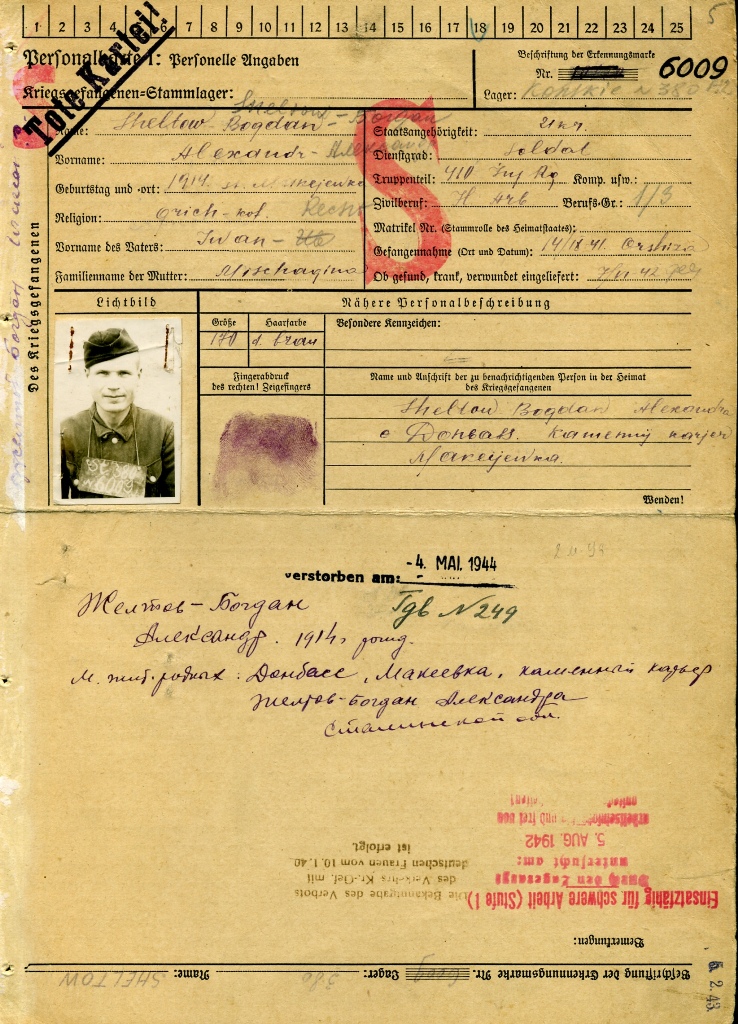 5
1 2 3 4 5 6 7 8 9 10 11 12 13 14 15 16 17 18 19 20 21 22 23 24 25
Tote Kartei!
Personalkarte I: Personelle Angaben
Beschriftung der Erkennungsmarke
Nr. 6009
Kriegsgefangenen-Stammlager:
Lager: Konskie N 380
Des Kriegsgefangenen
Sheltow - Bogdan
Name: Sheltow - Bogdan -
Vorname: Alexandr - Александр
Geburtstag und -ort: 1914. Makejewka
Religion: Griech-kat.
Vorname des Vaters: Iwan -
Familienname der Mutter: Moschagina
S
Staatsangehörigkeit: Ukr.
Dienstgrad: Soldat
Truppenteil: 410 Inf Rg Komp. usw.:
Zivilberuf: H Arb Berufs-Gr.: 1/3
Matrikel Nr. (Stammrolle des Heimatstaates):
Gefangennahme (Ort und Datum): 14/IX 41.
Ob gesund, krank, verwundet eingeliefert:
Lichtbild
Nähere Personalbeschreibung
Größe
Haarfarbe
170
d. braun
Besondere Kennzeichen:
Fingerabdruck
des rechten! Zeigefingers
Name und Anschrift der zu benachrichtigenden Person in der Heimat
des Kriegsgefangenen
Sheltow Bogdan Alexandra
Donbass. Kamennij karjer
Makejewka.
Wenden!
verstorben am: -4. MAI. 1944
Желтов-Богдан
Tgb N 249
Александр. 1914г рожд.
М. жит. родных: Донбасс, Макеевка, каменный карьер
Желтов-Богдан Александра
Сталинской обл.
5. AUG. 1942
untersucht am:
Durch den Lagerarzt
Einsatzfähig für schwere Arbeit (Stufe 1)
Die Bekanntgabe des Verbots
des Verkehrs Kr.-Gef. mit
deutschen Frauen vom 10.1.40
ist erfolgt.
Bemerkungen:
Beschriftung der Erkennungsmarke Nr. Lager: 380 Name: SHELTOW
5. 2. 43